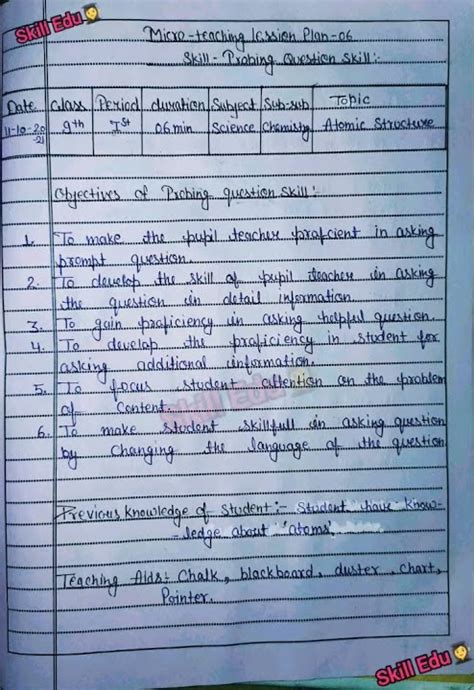 Skill Edu
Micro-teaching lession Plan-06
Skill - Probing Question Skill:-
Date Class Period duration Subject Sub-sub Topic
11-10-20 9th Ist 06min Science Chemistry Atomic Structure
21
Objectives of Probing question skill:-
1. To make the pupil teacher proficient in asking
prompt question.
2. To develop the skill of pupil teacher in asking
the question in detail information.
3. To gain proficiency in asking helpful question.
4. To develop the proficiency in student for
asking additional information.
5. To focus student attention on the problem
of content.
Skill Edu
6. To make student skillfull in asking question
by changing the language of the question
Previous knowledge of student:- Student have know-
-ledge about 'atoms'
Teaching Aids:- Chalk, blackboard, duster, chart,
Pointer.
Skill Edu